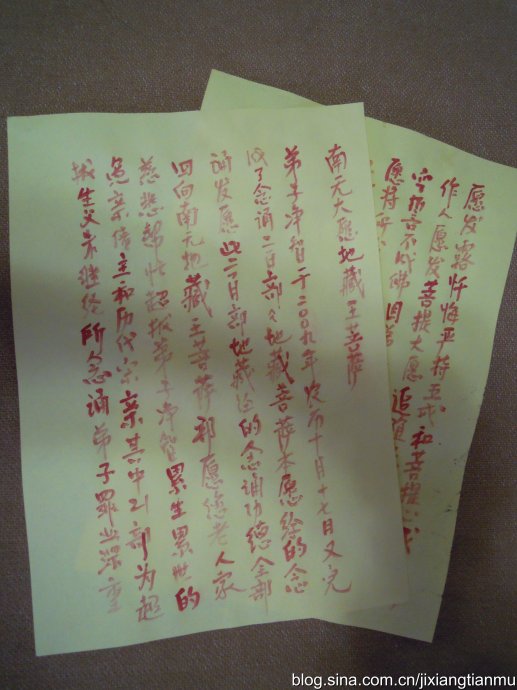 南无大愿地藏王菩萨
弟子净智于二00九年农历十月十七日又完
成了念诵二百部之地藏菩萨本愿经的念
诵发愿此二百部地藏经的念诵功德全部
回向南无地藏王菩萨祁愿您老人家
慈悲帮忙超拔弟子净智累生累世的
冤亲债主和历代宗亲其中21部为超
拔生父朱继经所念诵弟子罪业深重
愿发露忏悔严持五戒和菩提
作人愿发菩提大愿
愿将
blog.sina.com.cn/jixiangtianmu